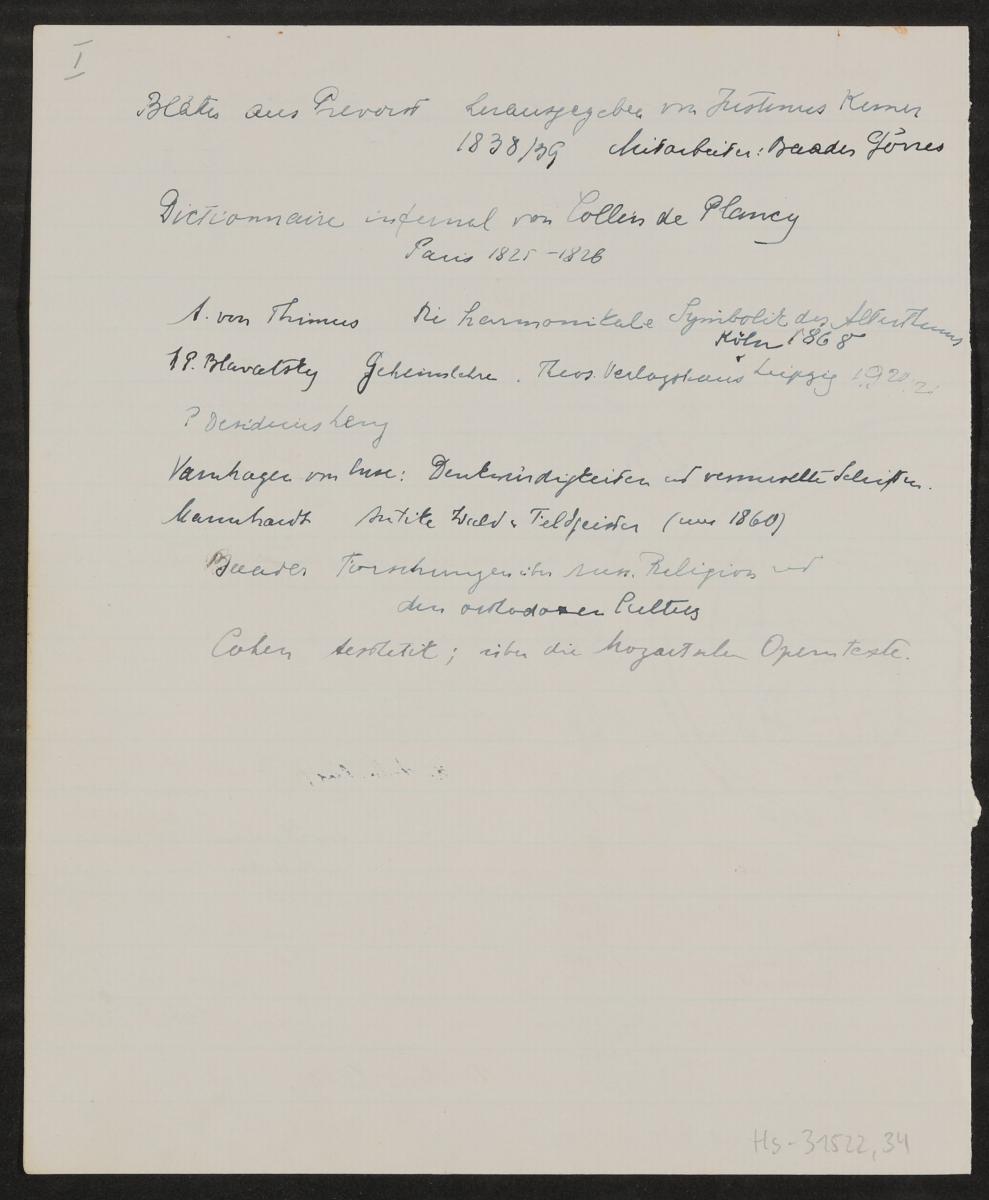 I
Blätter aus Prevorst herausgegeben von Justinus Kerner
1838/39 Mitarbeiter: Baader Görres
Dictionnaire infernal von Collin de Plancy
Paris 1825-1826
A. von Thimus Die harmonikale Symbolik des Alterthums
Köln 1868
H P. Blavatsky Geheimlehre. Theos. Verlagshaus Leipzig 1920/21
P Desiderius Lenz
Varnhagen von Ense: Denkwürdigkeiten und vermischte Schriften.
Mannhardt Antike Wald u Feldgeister (um 1860)
Baader Forschungen über russ. Religion und
den orthodoxen Cultus
Cohen Aesthetik; über die Mozartschen Operntexte.
Hs-31522,34